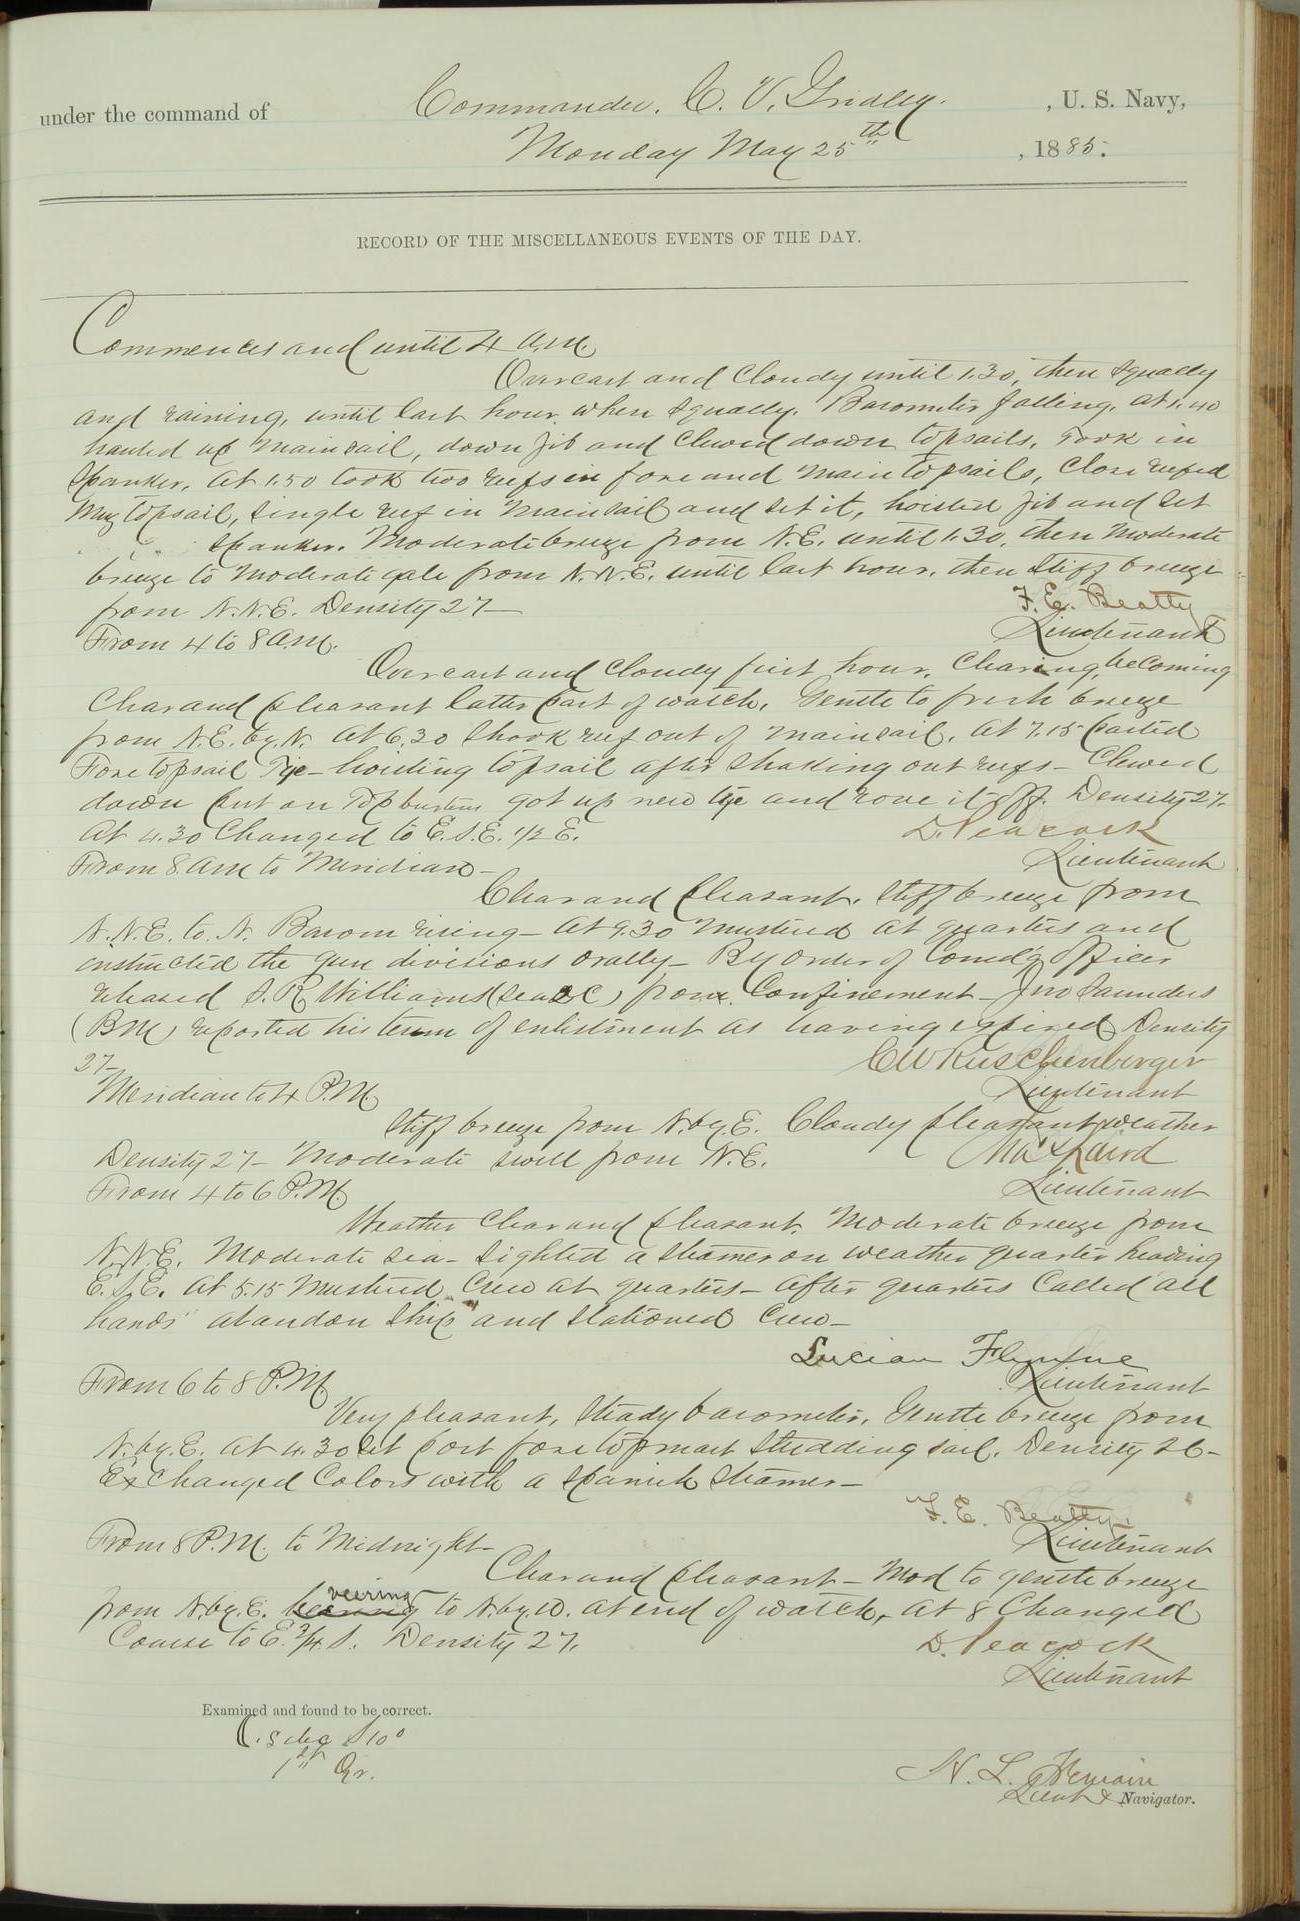 under the command of Commander. C. V. Gridley. , U. S. Navy,
Monday May 25th , 1885.
RECORD OF THE MISCELLANEOUS EVENTS OF THE DAY.
Commences and until 4 A.M.
Overcast and Cloudy until 1.30, then squally
and raining, until last hour when squally. Barometer falling. At 1.40
hauled up Mainsail, down jib and clewed down topsails, Took in
Spanker. At 1.50 took two reefs in fore and Main topsails, Close reefed
Miz topsail, single reef in Mainsail and set it, hoisted jib and set
Spanker. Moderate breeze from N.E. until 1.30, then Moderate
breeze to Moderate gale from N.N.E. until last hour, then stiff breeze
from N.N.E. Density 27—
F. E. Beatty
Lieutenant
From 4 to 8 A.M.
Overcast and Cloudy first hour, Clearing, becoming
Clear and pleasant latter part of watch, Gentle to fresh breeze
from N.E. by. N. At 6.30 Shook reef out of mainsail. At 7.15 parted
Fore topsail Tye— hoisting topsail after shaking out reefs— Clewed
down put on Top burtons got up new tye and rove it off. Density 27.
At 4.30 Changed to E.S.E. 1/2 E.
D. Peacock
Lieutenant
From 8 AM to Meridian—
Clear and pleasant. Stiff breeze from
N.N.E. to N. Barom rising— At 9.30 Mustered at quarters and
instructed the gun divisions orally— By order of Comd'g Officer
released S. R. Williams (Sea 2C) from Confinement— Jno Saunders
(BM) reported his term of enlistment as having expired Density
27—
C W Ruschenberger
Lieutenant
Meridian to 4 P.M.
Stiff breeze from N. by. E. Cloudy pleasant weather
Density 27— Moderate swell from N.E.
Laird
Lieutenant
From 4 to 6 P.M.
Weather Clear and pleasant. Moderate breeze from
N.N.E. Moderate sea— Sighted a steamer on weather quarter heading
E.S.E. At 5.15 Mustered Crew at quarters— After quarters Called all
hands "abandon ship" and stationed Crew—
Lucian Flynne
Lieutenant
From 6 to 8 P.M.
Very pleasant, steady barometer, Gentle breeze from
N. by. E. At 4.30 set port fore topmast studding sail. Density 26—
Exchanged Colors with a Spanish steamer—
F. E. Beatty.
Lieutenant
From 8 P.M. to Midnight—
Clear and pleasant— Mod to gentle breeze
veering
from N. by. E. bearing to N. by. W. at end of watch, At 8 Changed
Course to E. 3/4 S. Density 27.
D. Peacock
Lieutenant
Examined and found to be correct.
1st Qr.
Lieut & Navigator.